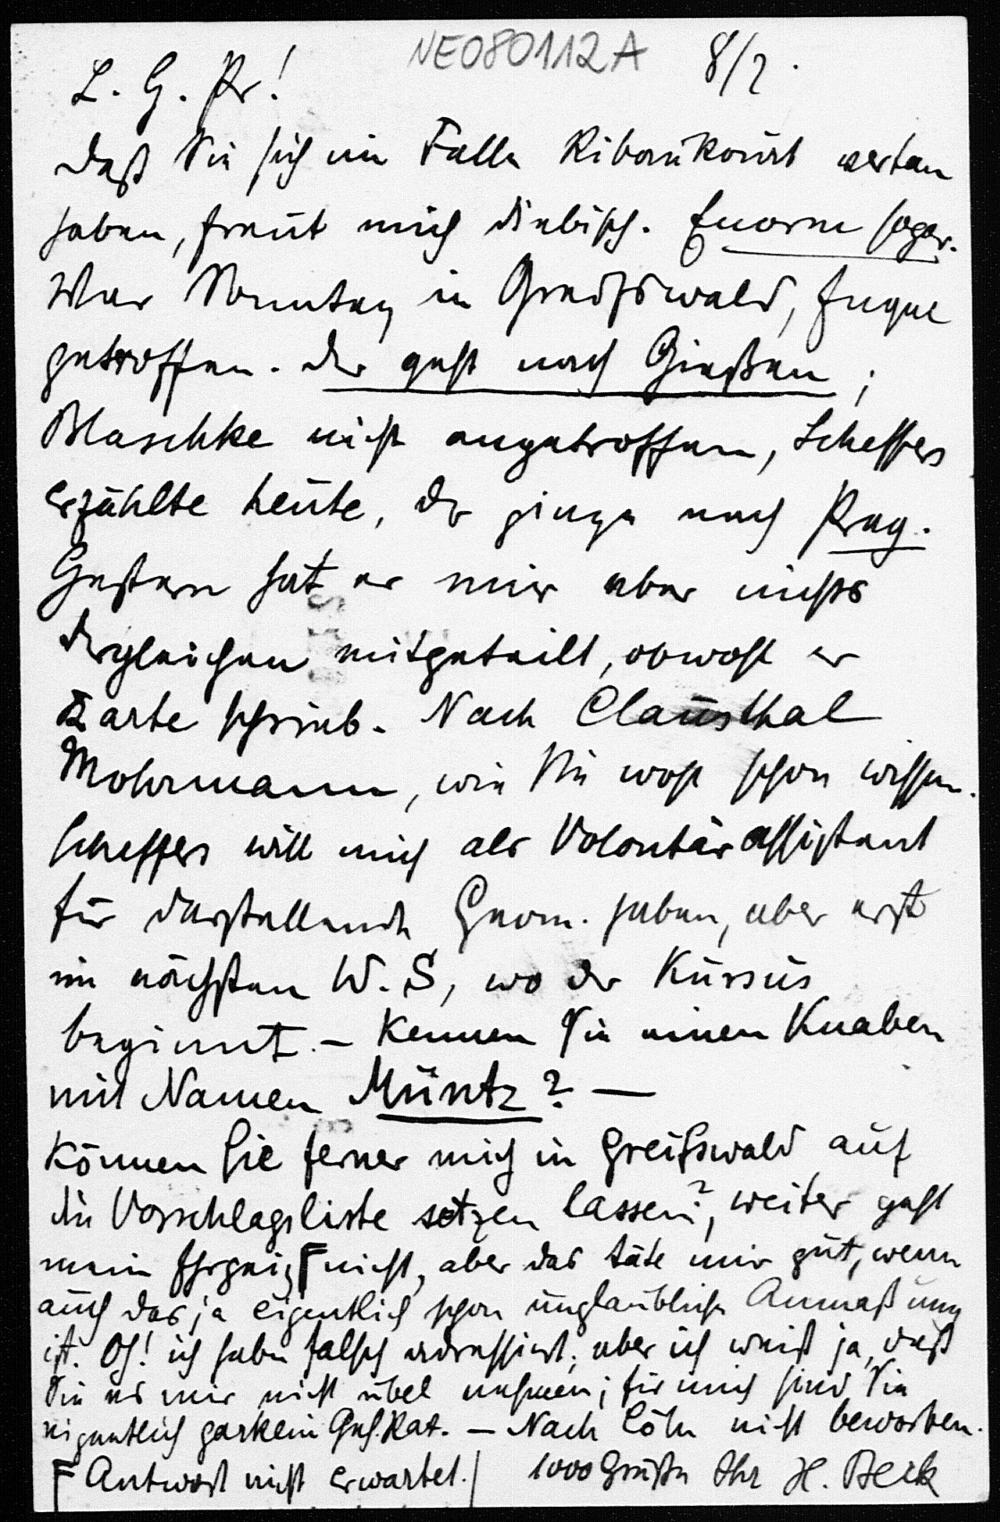 NE080112A 8/2.
L. G. Pr!
Daß Sie sich im Falle Ribaukourt vertan
haben, freut mich diebisch. Enorm sogar.
War Sonntag in Greifswald, Engel
getroffen. Der geht nach Gießen;
Blaschke nicht angetroffen, Scheffers
erzählte heute, der ginge nach Prag.
Gestern hat er mir aber nichts
dergleichen mitgeteilt, obwohl er
Karte schrieb. Nach Clausthal
Mohrmann, wie Sie wohl schon wissen.
Scheffers will mich als Volontärassistent
für darstellende Geom. haben, aber erst
im nächsten W. S, wo der Kursus
beginnt. – Kennen Sie einen Knaben
mit Namen Müntz? –
Können Sie ferner mich in Greifswald auf
die Vorschlagsliste setzen lassen?, weiter geht
mein Ehrgeiz F nicht, aber das täte mir gut, wenn
auch das ja eigentlich schon unglaubliche Anmaßung
ist. Oh! ich habe falsch adressiert; aber ich weiß ja, daß
Sie es mir nicht übel nehmen; für mich sind Sie
eigentlich garkein Geh. Rat. – Nach Cöln nicht beworben.
F Antwort nicht erwartet. / 1000 Grüße Ihr H. Beck